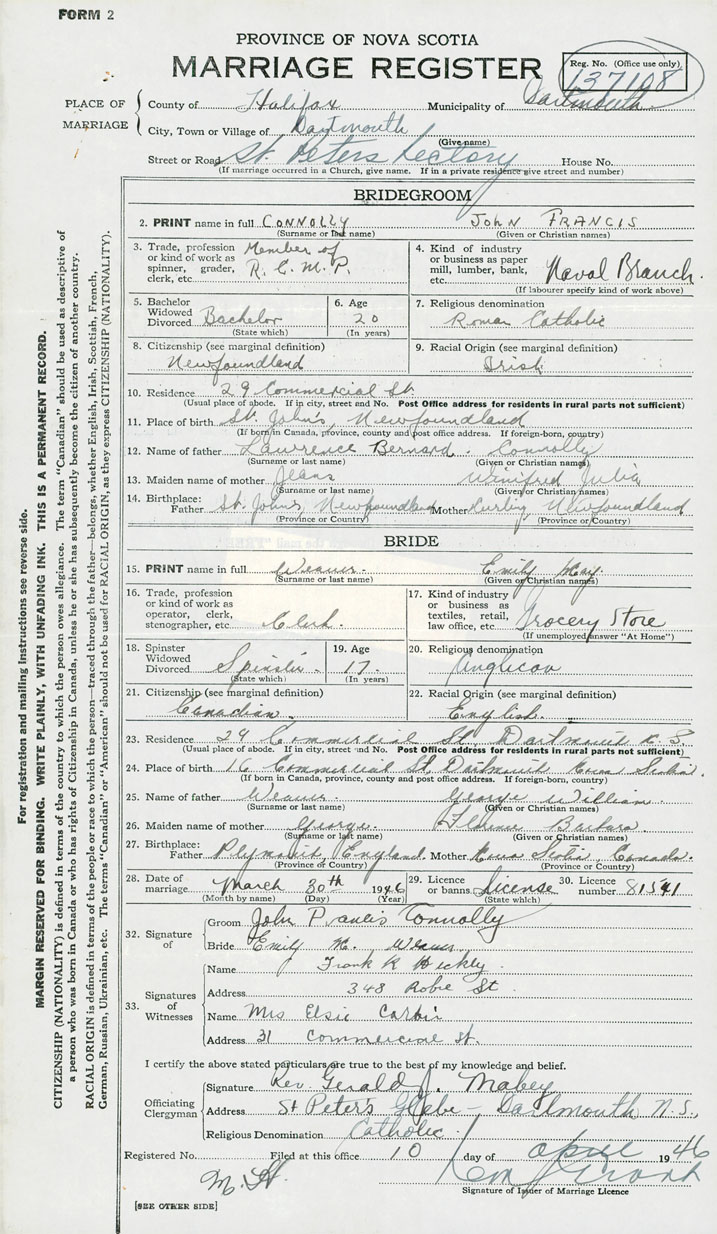 FORM 2
PROVINCE OF NOVA SCOTIA
MARRIAGE REGISTER
Reg. No. (Office use only)
137108
PLACE OF MARRIAGE
County of Halifax Municipality of Dartmouth
City, Town or Village of Dartmouth
(Give name)
Street or Road St. Peters Rectory House No.
(If marriage occurred in a Church, give name. If in a private residence give street and number)
BRIDEGROOM
2. PRINT name in full CONNOLLY JOHN FRANCIS
(Surname or last name) (Given or Christian names)
3. Trade, profession or kind of work as spinner, grader, clerk, etc. Member of R.C.M.P.
4. Kind of industry or business as paper mill, lumber, bank, etc. Naval Branch.
(If labourer specify kind of work above)
5. Bachelor Widowed Divorced Bachelor
(State which)
6. Age 20
(In years)
7. Religious denomination
Roman Catholic
8. Citizenship (see marginal definition)
Newfoundland
9. Racial Origin (see marginal definition)
Irish
10. Residence 29 Commercial St.
(Usual place of abode. If in city, street and No. Post Office address for residents in rural parts not sufficient)
11. Place of birth St. John's, Newfoundland
(If born in Canada, province, county and post office address. If foreign-born, country)
12. Name of father Lawrence Bernard Connolly
(Surname or last name) (Given or Christian names)
13. Maiden name of mother Winifred Julia
(Surname or last name) (Given or Christian names)
14. Birthplace:
Father St. John's, Newfoundland Mother Curling, Newfoundland
(Province or Country) (Province or Country)
BRIDE
15. PRINT name in full Weaver Emily May
(Surname or last name) (Given or Christian names)
16. Trade, profession or kind of work as operator, clerk, stenographer, etc Clerk.
17. Kind of industry or business as textiles, retail, law office, etc. Grocery Store
(If unemployed answer "At Home")
18. Spinster Widowed Divorced Spinster
(State which)
19. Age 17
(In years)
20. Religious denomination
Anglican
21. Citizenship (see marginal definition)
Canadian.
22. Racial Origin (see marginal definition)
English.
23. Residence 29 Commercial St. Dartmouth N.S.
(Usual place of abode. If in city, street and No. Post Office address for residents in rural parts not sufficient)
24. Place of birth 16 Commercial St. Dartmouth Nova Scotia.
(If born in Canada, province, county and post office address. If foreign-born, country)
25. Name of father Weaver George William
(Surname or last name) (Given or Christian names)
26. Maiden name of mother George. Florence Barbara
(Surname or last name) (Given or Christian names)
27. Birthplace:
Father Plymouth, England. Mother Nova Scotia, Canada.
(Province or Country) (Province or Country)
28. Date of marriage March 30th 1946
(Month by name) (Day) (Year)
29. Licence or banns License
(State which)
30. Licence number 81541
32. Signature of
Groom John Francis Connolly
Bride Emily M. Weaver
33. Signatures of Witnesses
Name Frank R Hickley
Address 348 Robie St
Name Mrs Elsie Corbin
Address 31 Commercial St.
I certify the above stated particulars are true to the best of my knowledge and belief.
Officiating Clergyman
Signature Rev. Gerald J. Mabey
Address St Peter's Glebe - Dartmouth N.S.
Religious Denomination Catholic
Registered No. Filed at this office 10 day of April 1946
M. H.
Signature of Issuer of Marriage Licence
[SEE OTHER SIDE]
For registration and mailing instructions see reverse side.
MARGIN RESERVED FOR BINDING. WRITE PLAINLY, WITH UNFADING INK. THIS IS A PERMANENT RECORD.
CITIZENSHIP (NATIONALITY) is defined in terms of the country to which the person owes allegiance. The term "Canadian" should be used as descriptive of
a person who was born in Canada or who has rights of Citizenship in Canada, unless he or she has subsequently become the citizen of another country.
RACIAL ORIGIN is defined in terms of the people or race to which the person—traced through the father—belongs, whether English, Irish, Scottish, French,
German, Russian, Ukrainian, etc. The terms "Canadian" or "American" should not be used for RACIAL ORIGIN, as they express CITIZENSHIP (NATIONALITY).